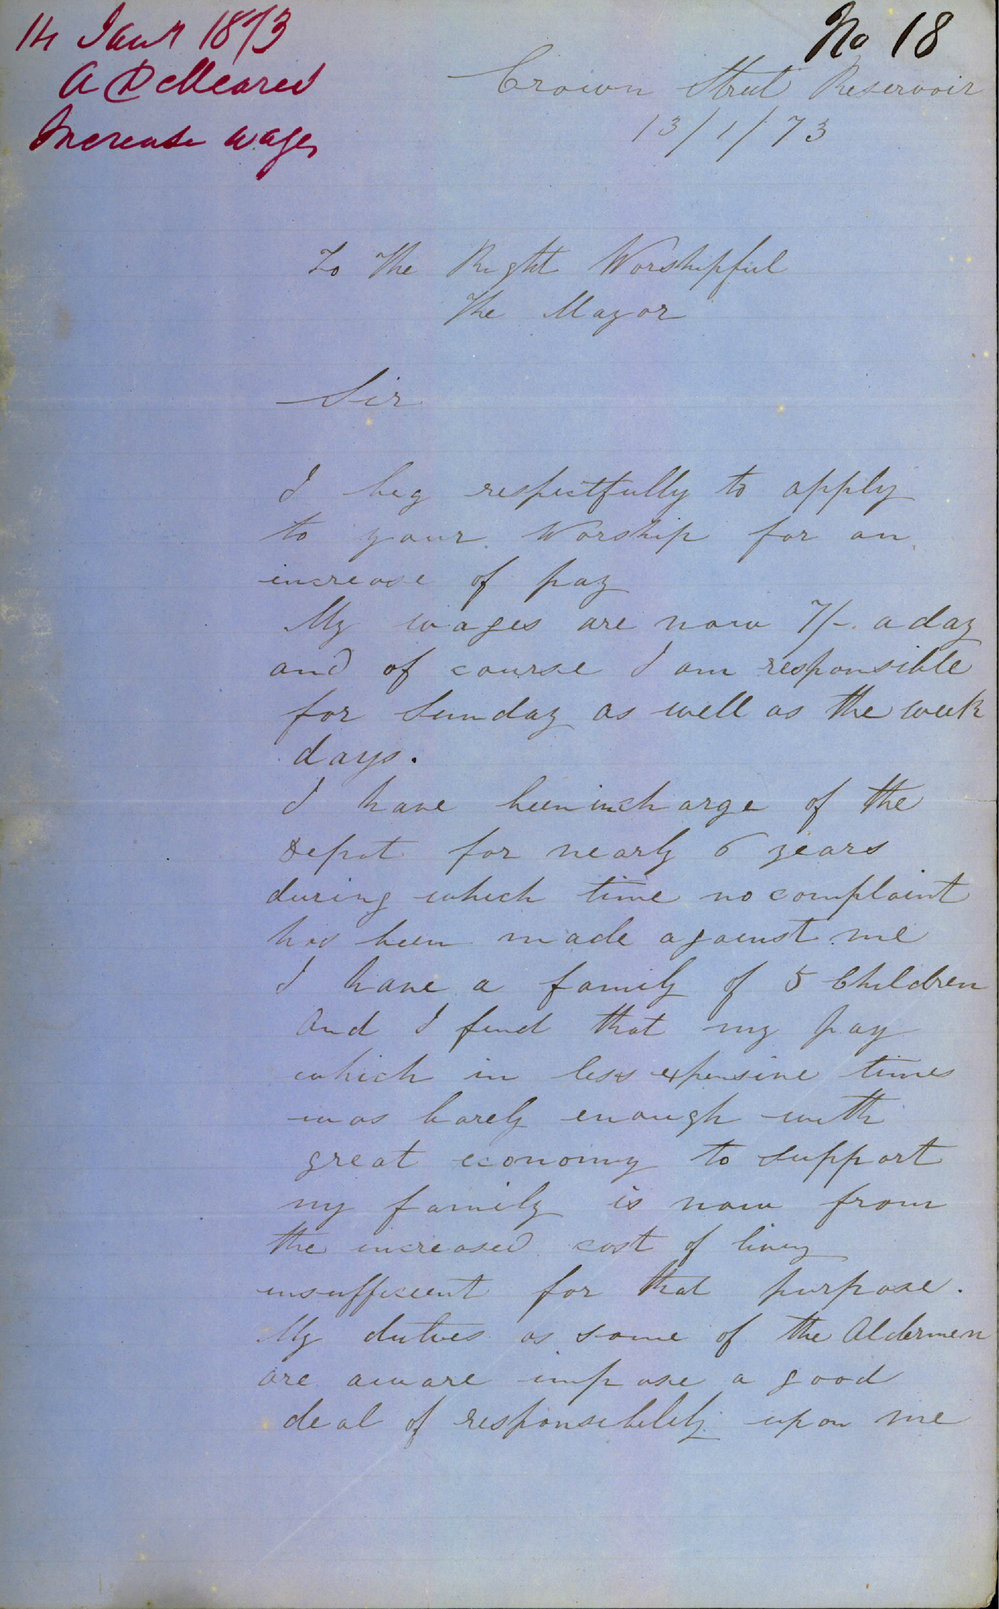 14 Jany 1873
A D Meares
Increase wages
No 18
Crown Street Reservoir
13/1/73
To The Right Worshipful
The Mayor
Sir
I beg respectfully to apply
to your Worship for an
increase of pay
My wages are now 7/- a day
and of course I am responsible
for Sunday as well as the week
days.
I have been in charge of the
Depot for nearly 6 years
during which time no complaint
has been made against me
I have a family of 5 Children
And I find that my pay
which in less expensive times
was barely enough with
great economy to support
my family is now from
the increased cost of living
insufficient for that purpose.
My duties as some of the Aldermen
are aware impose a good
deal of responsibility upon me